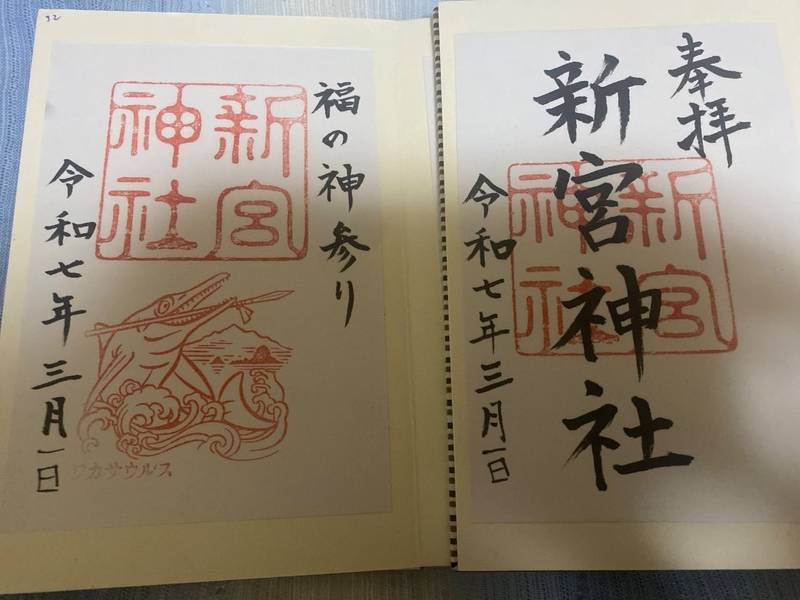 奉拝
新宮神社
令和七年三月一日
新宮
神社
福の神参り
新宮
神社
令和七年三月一日
ワカサウルス
32